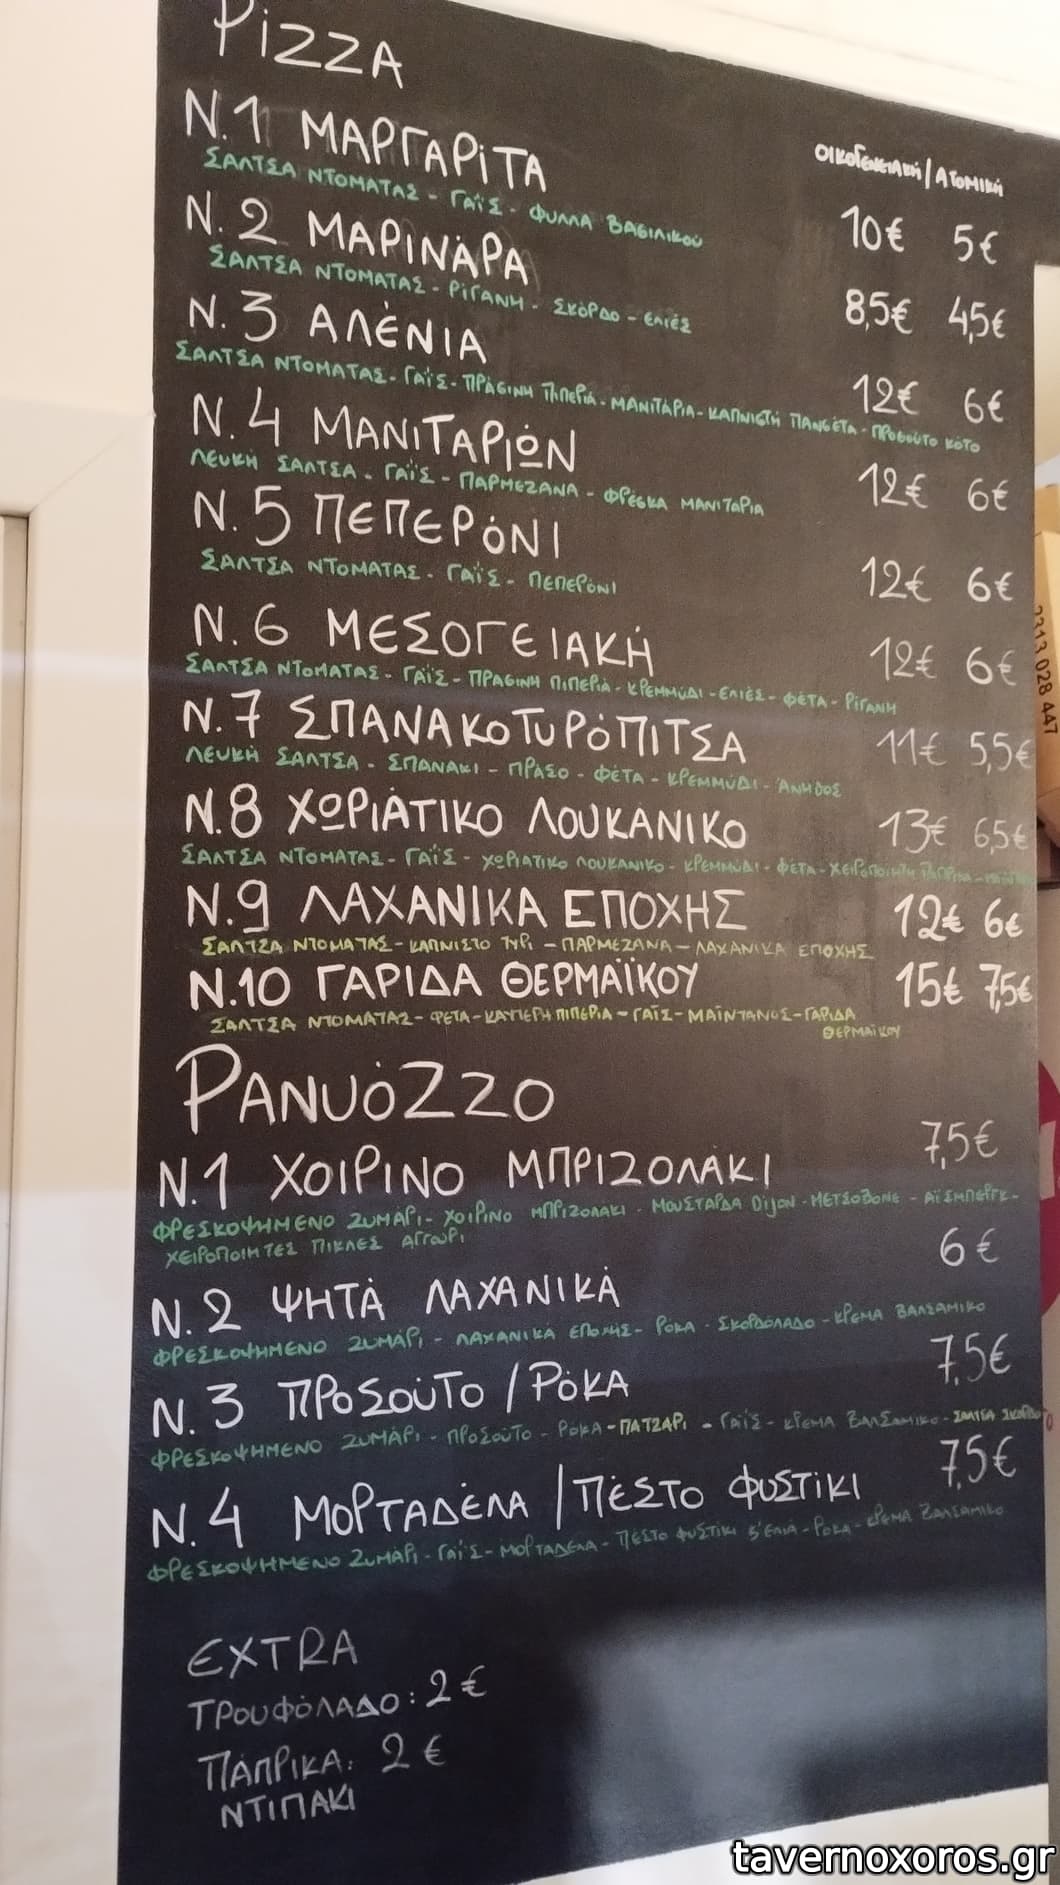 Pizza
ΟΙΚΟΓΕΝΕΙΑΚΗ / ΑΤΟΜΙΚΗ
Ν.1 ΜΑΡΓΑΡίΤΑ 10€ 5€
ΣΑΛΤΣΑ ΝΤΟΜΑΤΑΣ - ΓΑΪΣ - ΦΥΛΛΑ ΒΑΣΙΛΙΚΟύ
Ν.2 ΜΑΡΙΝΆΡΑ 8,5€ 4,5€
ΣΑΛΤΣΑ ΝΤΟΜΑΤΑΣ - ΡίΓΑΝΗ - ΣΚΌΡΔΟ - ΕΛΙΈΣ
Ν.3 ΑΛΈΝΙΑ 12€ 6€
ΣΑΛΤΣΑ ΝΤΟΜΑΤΑΣ - ΓΑΪΣ - ΠΡΆΣΙΝΗ ΠΙΠΕΡΙΆ - ΜΑΝΙΤΆΡΙΑ - ΚΑΠΝΙΣΤΉ ΠΑΝΣΈΤΑ - ΠΡΟΣΟύΤΟ ΚΟΤΟ
Ν.4 ΜΑΝΙΤΑΡΙΏΝ 12€ 6€
ΛΕΥΚΉ ΣΑΛΤΣΑ - ΓΑΪΣ - ΠΑΡΜΕΖΑΝΑ - ΦΡΈΣΚΑ ΜΑΝΙΤΑΡΙΑ
Ν.5 ΠΕΠΕΡΌΝΙ 12€ 6€
ΣΑΛΤΣΑ ΝΤΟΜΑΤΑΣ - ΓΑΪΣ - ΠΕΠΕΡΌΝΙ
Ν.6 ΜΕΣΟΓΕΙΑΚΉ 12€ 6€
ΣΑΛΤΣΑ ΝΤΟΜΑΤΑΣ - ΓΑΪΣ - ΠΡΑΣΙΝΗ ΠΙΠΕΡΙΆ - ΚΡΕΜΜΎΔΙ - ΕΛΙΈΣ - ΦΈΤΑ - ΡίΓΑΝΗ
Ν.7 ΣΠΑΝΑΚΟΤΥΡΌΠΙΤΣΑ 11€ 5,5€
ΛΕΥΚΉ ΣΑΛΤΣΑ - ΣΠΑΝΑΚΙ - ΠΡΆΣΟ - ΦΈΤΑ - ΚΡΕΜΜΎΔΙ - ΆΝΗΘΟΣ
Ν.8 ΧΩΡΙΆΤΙΚΟ ΛΟΥΚΑΝΙΚΟ 13€ 6,5€
ΣΑΛΤΣΑ ΝΤΟΜΑΤΑΣ - ΓΑΪΣ - ΧΩΡΙΑΤΙΚΟ ΛΟΥΚΑΝΙΚΟ - ΚΡΕΜΜΎΔΙ - ΦΈΤΑ - ΧΕΙΡΟΠΟΊΗΤΗ ΠΆΠΡΙΚΑ
Ν.9 ΛΑΧΑΝΙΚΑ ΕΠΟΧΗΣ 12€ 6€
ΣΑΛΤΖΑ ΝΤΟΜΑΤΑΣ - ΚΑΠΝΙΣΤΟ ΤΥΡΙ - ΠΑΡΜΕΖΑΝΑ - ΛΑΧΑΝΙΚΑ ΕΠΟΧΗΣ
Ν.10 ΓΑΡΙΔΑ ΘΕΡΜΑΪΚΟΥ 15€ 7,5€
ΣΑΛΤΣΑ ΝΤΟΜΑΤΑΣ - ΦΕΤΑ - ΚΑΥΤΕΡΗ ΠΙΠΕΡΙΑ - ΓΑΪΣ - ΜΑΪΝΤΑΝΟΣ - ΓΑΡΙΔΑ
ΘΕΡΜΑΪΚΟΥ
2313 028 447
PANUόZZO
Ν.1 ΧΟΙΡΙΝΟ ΜΠΡΙΖΟΛΆΚΙ 7,5€
ΦΡΕΣΚΟΨΗΜΕΝΟ ΖΥΜΆΡΙ - ΧΟΙΡΙΝΟ ΜΠΡΙΖΟΛΑΚΙ - ΜΟΥΣΤΑΡΔΑ Dijon - ΜΕΤΣΟΒΟΝΕ - ΑΪΣΜΠΕΡΓΚ -
ΧΕΙΡΟΠΟΙΗΤΕΣ ΠΙΚΛΕΣ ΑΓΓΟύΡΙ
Ν.2 ΨΗΤΆ ΛΑΧΑΝΙΚΆ 6€
ΦΡΕΣΚΟΨΗΜΕΝΟ ΖΥΜΆΡΙ - ΛΑΧΑΝΙΚΆ ΕΠΟΧΗΣ - ΡΟΚΑ - ΣΚΟΡΔΌΛΑΔΟ - ΚΡΕΜΑ ΒΑΛΣΑΜΙΚΟ
Ν.3 ΠΡΟΣΟύΤΟ / ΡΌΚΑ 7,5€
ΦΡΕΣΚΟΨΗΜΕΝΟ ΖΥΜΆΡΙ - ΠΡΟΣΟύΤΟ - ΡΌΚΑ - ΠΑΤΖΑΡΙ - ΓΑΪΣ - ΚΡΕΜΑ ΒΑΛΣΑΜΙΚΟ - ΣΑΛΤΣΑ ΣΚΟΡΔΟ
Ν.4 ΜΟΡΤΑΔΈΛΑ / ΠΈΣΤΟ ΦΥΣΤίΚΙ 7,5€
ΦΡΕΣΚΟΨΗΜΕΝΟ ΖΥΜΆΡΙ - ΓΑΪΣ - ΜΟΡΤΑΔΕΛΑ - ΠΈΣΤΟ ΦΥΣΤίΚΙ & ΕΛΙΆ - ΡΟΚΑ - ΚΡΕΜΑ ΒΑΛΣΑΜΙΚΟ
EXTRA
ΤΡΟΥΦΌΛΑΔΟ: 2€
ΠΆΠΡΙΚΑ: 2€
ΝΤΙΠΑΚΙ
tavernoxoros.gr